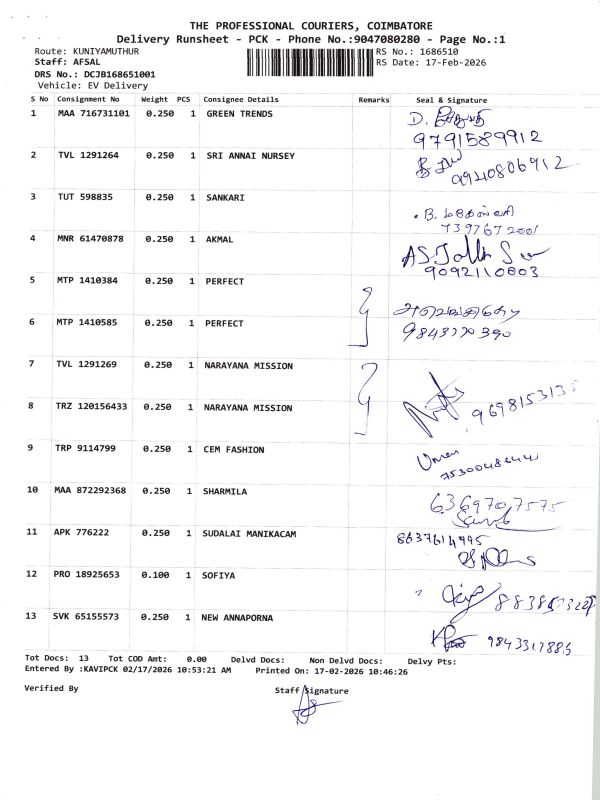 THE PROFESSIONAL COURIERS, COIMBATORE
Delivery Runsheet - PCK - Phone No.:9047080280 - Page No.:1
Route: KUNIYAMUTHUR RS No.: 1686510
Staff: AFSAL RS Date: 17-Feb-2026
DRS No.: DCJB168651001
Vehicle: EV Delivery
S No Consignment No Weight PCS Consignee Details Remarks Seal & Signature
1 MAA 716731101 0.250 1 GREEN TRENDS D.
9791589912
2 TVL 1291264 0.250 1 SRI ANNAI NURSEY
9940806912
3 TUT 598835 0.250 1 SANKARI B.
7397672001
4 MNR 61470878 0.250 1 AKMAL
9092110803
5 MTP 1410384 0.250 1 PERFECT
6 MTP 1410585 0.250 1 PERFECT
7 TVL 1291269 0.250 1 NARAYANA MISSION
8 TRZ 120156433 0.250 1 NARAYANA MISSION 9698153135
9 TRP 9114799 0.250 1 CEM FASHION
10 MAA 872292368 0.250 1 SHARMILA 6369707575
11 APK 776222 0.250 1 SUDALAI MANIKACAM 8637614995
12 PRO 18925653 0.100 1 SOFIYA
13 SVK 65155573 0.250 1 NEW ANNAPORNA
Tot Docs: 13 Tot COD Amt: 0.00 Delvd Docs: Non Delvd Docs: Delvy Pts:
Entered By :KAVIPCK 02/17/2026 10:53:21 AM Printed On: 17-02-2026 10:46:26
Verified By Staff Signature